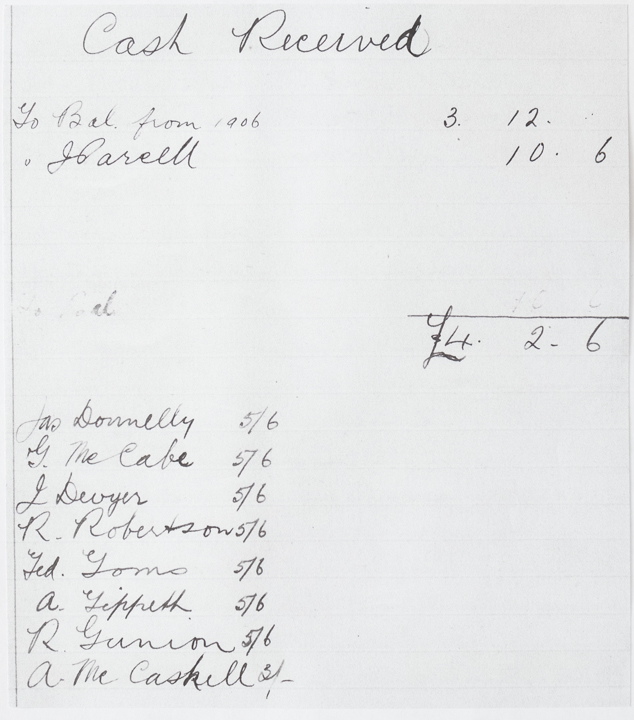 Cash Received
To Bal. from 1906 3. 12.
" J Parcell 10. 6
To Bal
£4. 2- 6
Jas Donnelly 5/6
G. McCabe 5/6
J Dewyer 5/6
R. Robertson 5/6
Ted. Toms 5/6
A. Tippeth 5/6
R. Gunion 5/6
A. McCaskill 3/-